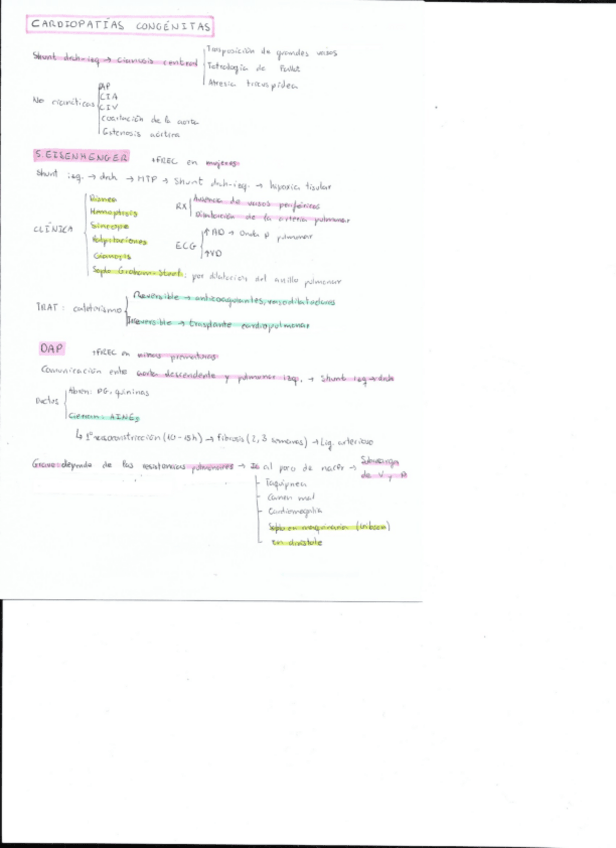 CARDIOPATÍAS CONGÉNITAS
Shunt drch-izq → Cianosis central
Trasposición de grandes vasos
Tetralogía de Fallot
Atresia tricuspídea
No cianóticas
AP
CIA
CIV
Coartación de la aorta
Estenosis aórtica
S. EISENMENGER +FREC en mujeres
Shunt izq. → drch → HTP → Shunt drch-izq. → hipoxia tisular
CLÍNICA
Disnea
Hemoptisis
Síncope
Palpitaciones
Cianosis
Soplo Graham-Steell: por dilatación del anillo pulmonar
RX
Ausencia de vasos periféricos
Dilatación de la arteria pulmonar
ECG
↑AD → Onda P pulmonar
↑VD
TRAT: cateterismo
Reversible → anticoagulantes, vasodilatadores
Irreversible → trasplante cardiopulmonar
DAP +FREC en niños prematuros
Comunicación entre aorta descendente y pulmonar izq. → Shunt izq → drch
Ductus
Abren: PG, quininas
Cierran: AINEs
↳ 1º vasoconstricción (10-15h) → fibrosis (2,3 semanas) → Lig. arterioso
Grave: depende de las resistencias pulmonares → IC al poco de nacer → Sobrecarga
de V y A
Taquipnea
Comen mal
Cardiomegalia
Soplo en maquinaria (Gibson)
en diástole